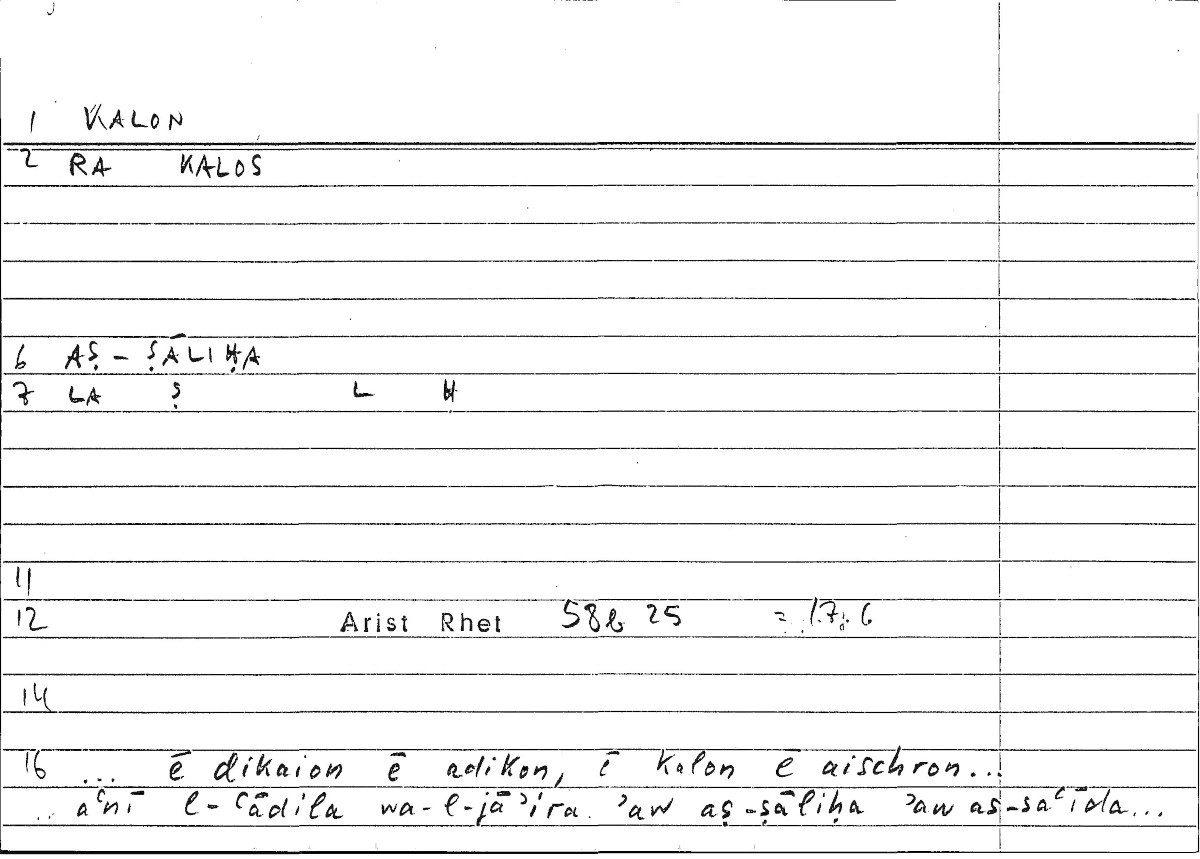 1 KALON
2 RA KALOS
6 AṢ - ṢĀLIḤA
7 LA Ṣ L Ḥ
11
12 Arist Rhet 58b 25 = 17,6
14
16 ... ē dikaion ē adikon, ē kalon ē aischron...
.. aʿnī l-ʿādila wa-l-jāʾira. ʾaw aṣ-ṣāliḥa ʾaw as-saʿīda...